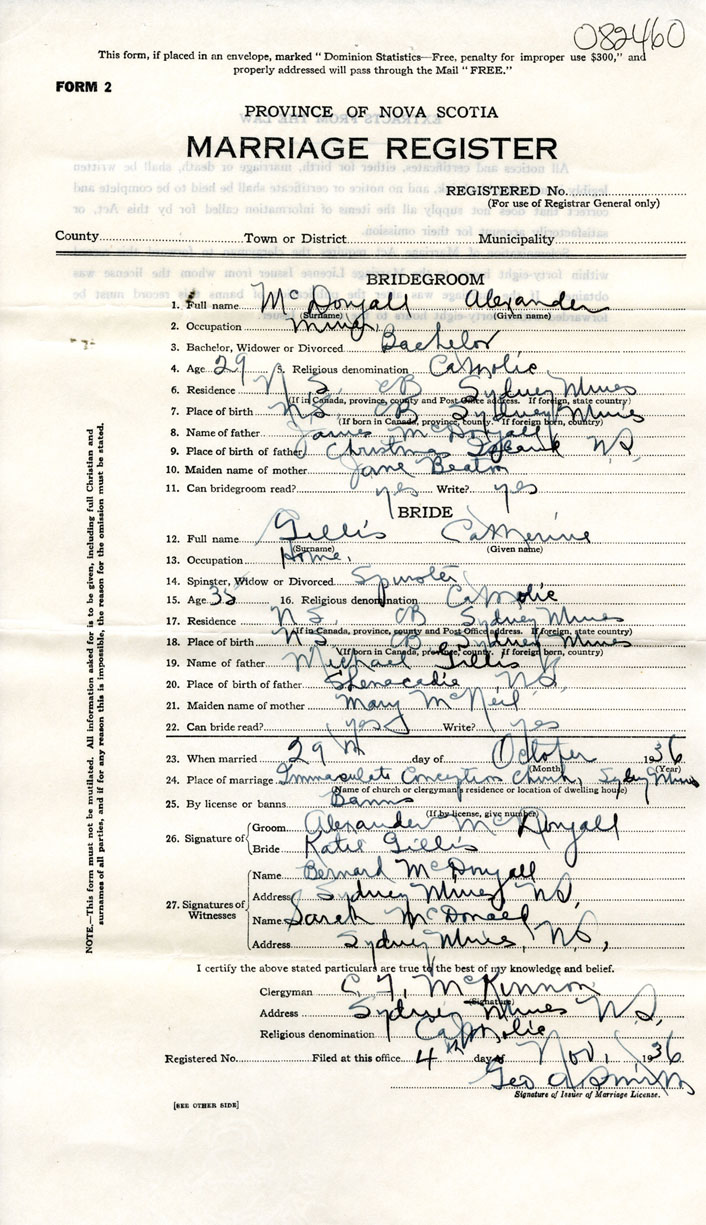 082460
This form, if placed in an envelope, marked "Dominion Statistics—Free, penalty for improper use $300," and
properly addressed will pass through the Mail "FREE."
FORM 2
PROVINCE OF NOVA SCOTIA
MARRIAGE REGISTER
REGISTERED No.
(For use of Registrar General only)
County Town or District Municipality
BRIDEGROOM
1. Full name McDougall Alexander
(Surname) (Given name)
2. Occupation Miner
3. Bachelor, Widower or Divorced Bachelor
4. Age 29 5. Religious denomination Catholic
6. Residence N S CB Sydney Mines
(If in Canada, province, county and Post Office address. If foreign, state country)
7. Place of birth N S CB Sydney Mines
(If born in Canada, province, county. If foreign born, country)
8. Name of father James McDougall
9. Place of birth of father Christmas Island NS
10. Maiden name of mother Jane Beaton
11. Can bridegroom read? yes Write? yes
BRIDE
12. Full name Gillis Catherine
(Surname) (Given name)
13. Occupation Home
14. Spinster, Widow or Divorced Spinster
15. Age 35 16. Religious denomination Catholic
17. Residence N S CB Sydney Mines
(If in Canada, province, county and Post Office address. If foreign, state country)
18. Place of birth N S CB Sydney Mines
(If born in Canada, province, county. If foreign born, country)
19. Name of father Michael Gillis
20. Place of birth of father Shenacadie, NS,
21. Maiden name of mother Mary McNeil
22. Can bride read? yes Write? yes
23. When married 29th day of October 1936
(Month) (Year)
24. Place of marriage Immaculate Conception Church, Sydney Mines
(Name of church or clergyman's residence or location of dwelling house)
25. By license or banns Banns
(If by license, give number)
26. Signature of Groom Alexander McDougall
Bride Katie Gillis
27. Signatures of Witnesses Name Bernard McDougall
Address Sydney Mines NS,
Name Sarah McDonald
Address Sydney Mines, NS,
I certify the above stated particulars are true to the best of my knowledge and belief.
Clergyman C. F. McKinnon
(Signature)
Address Sydney Mines NS,
Religious denomination Catholic
Registered No. Filed at this office 4th day of Nov. 1936
Geo A Smith
Signature of Issuer of Marriage License.
[SEE OTHER SIDE]
NOTE.—This form must not be mutilated. All information asked for is to be given, including full Christian and
surnames of all parties, and if for any reason this is impossible, the reason for the omission must be stated.